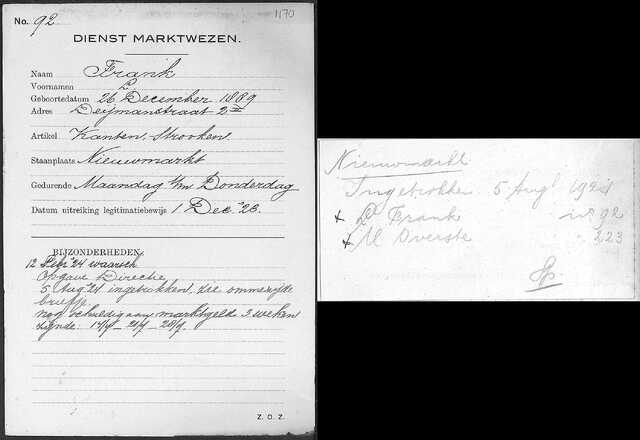 No. 92
1170
DIENST MARKTWEZEN.
Naam Frank
Voornamen L
Geboortedatum 26 December 1889
Adres Deijmanstraat 2 II
Artikel Kanten-Strooken
Staanplaats Nieuwmarkt
Gedurende Maandag t/m Donderdag
Datum uitreiking legitimatiebewijs 1 Dec. '23.
BIJZONDERHEDEN
12 '24 waarsch
Opgave Directie
5 Aug '24 ingetrokken zie ommezijde
briefje
nog schuldig aan marktgeld 3 weken
zijnde 14/7 - 21/7 - 28/7.
Z. O. Z.
Nieuwmarkt
Ingetrokken 5 Aug 1924
x L Frank nr 92
x M Overste " 223